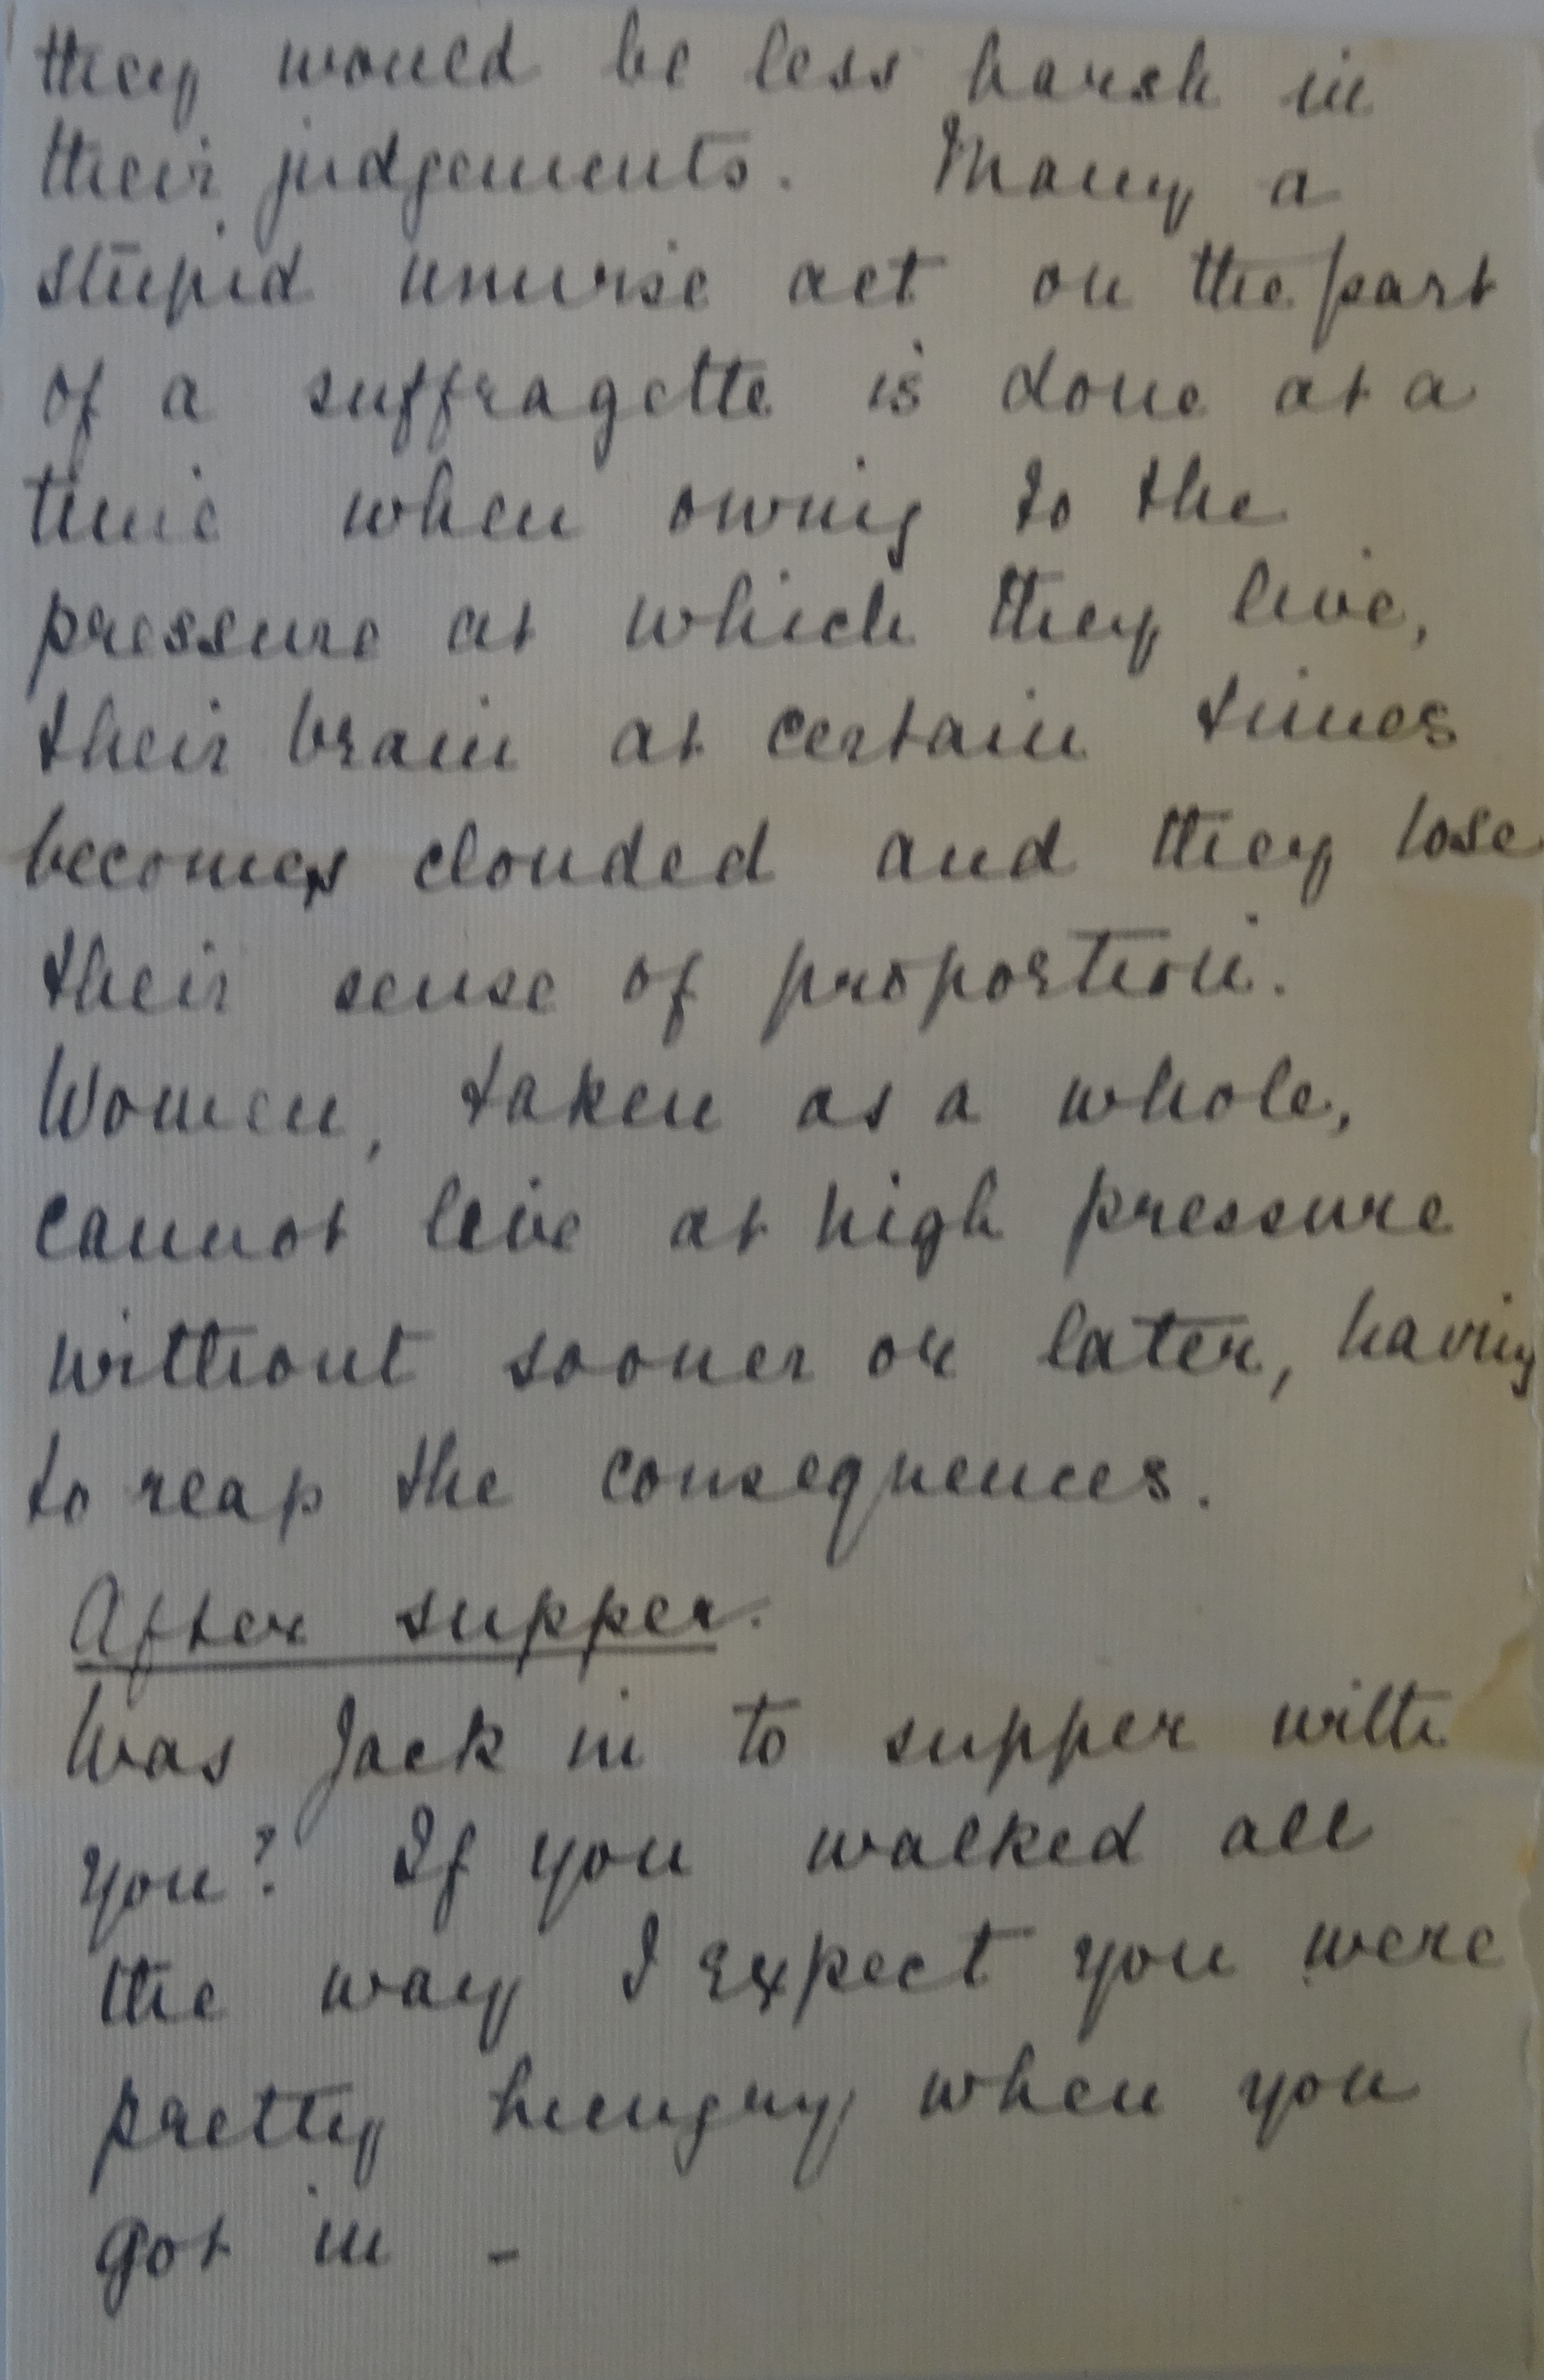 they would be less harsh in
their judgements. Many a
stupid unwise act on the part
of a suffragette is done at a
time when owing to the
pressure at which they live,
their brain at certain times
becomes clouded and they lose
their sense of proportion.
Women, taken as a whole,
cannot live at high pressure
without sooner or later, having
to reap the consequences.
After supper.
Was Jack in to supper with
you? If you walked all
the way I expect you were
pretty hungry when you
got in -